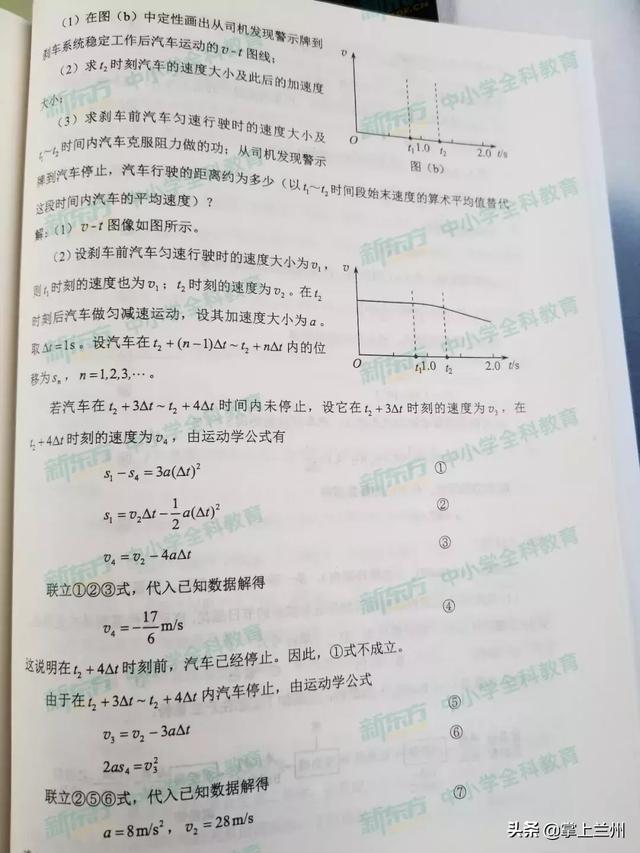 (1)在图(b)中定性画出从司机发现警示牌到
刹车系统稳定工作后汽车运动的v-t图线;
(2)求t₂时刻汽车的速度大小及此后的加速度
大小;
(3)求刹车前汽车匀速行驶时的速度大小及
t₁~t₂时间内汽车克服阻力做的功;从司机发现警示
牌到汽车停止,汽车行驶的距离约为多少(以t₁~t₂时间段始末速度的算术平均值替代
这段时间内汽车的平均速度)?
v
O
t₁ 1.0 t₂ 2.0 t/s
图(b)
解:(1)v-t图像如图所示。
(2)设刹车前汽车匀速行驶时的速度大小为v₁,
则t₁时刻的速度也为v₁;t₂时刻的速度为v₂。在t₂
时刻后汽车做匀减速运动,设其加速度大小为a。
取Δt=1s。设汽车在t₂+(n-1)Δt~t₂+nΔt内的位
移为sₙ,n=1,2,3,…。
v
O
t₁ 1.0 t₂ 2.0 t/s
若汽车在t₂+3Δt~t₂+4Δt时间内未停止,设它在t₂+3Δt时刻的速度为v₃,在
t₂+4Δt时刻的速度为v₄,由运动学公式有
s₁-s₄=3a(Δt)² ①
s₁=v₂Δt-1/2a(Δt)² ②
v₄=v₂-4aΔt ③
联立①②③式,代入已知数据解得
v₄=-17/6m/s ④
这说明在t₂+4Δt时刻前,汽车已经停止。因此,①式不成立。
由于在t₂+3Δt~t₂+4Δt内汽车停止,由运动学公式
v₃=v₂-3aΔt ⑤
2as₄=v₃² ⑥
联立②⑤⑥式,代入已知数据解得
a=8m/s²,v₂=28m/s ⑦
新东方 中小学全科教育
头条@掌上兰州